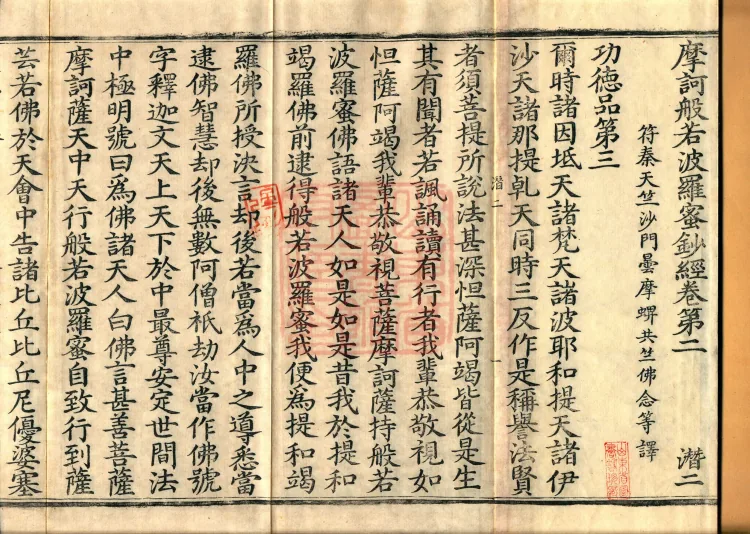 摩訶般若波羅蜜鈔經卷第二 潛二
符秦天竺沙門曇摩蜱共竺佛念等譯
功德品第三
爾時諸因坻天諸梵天諸波耶和提天諸伊
沙天諸那提乹天同時三反作是稱譽法賢
者須菩提所說法甚深怛薩阿竭皆從是生
潛二
其有聞者若諷誦讀有行者我輩恭敬視如
怛薩阿竭我輩恭敬視菩薩摩訶薩持般若
波羅蜜佛語諸天人如是如是昔我於提和
竭羅佛前逮得般若波羅蜜我便為提和竭
羅佛所授決言却後若當為人中之導悉當
逮佛智慧却後無數阿僧祇劫汝當作佛號
字釋迦文天上天下於中最尊安定世間法
中極明號曰為佛諸天人白佛言甚善菩薩
摩訶薩天中天行般若波羅蜜自致行到薩
芸若佛於天會中告諸比丘比丘尼優婆塞